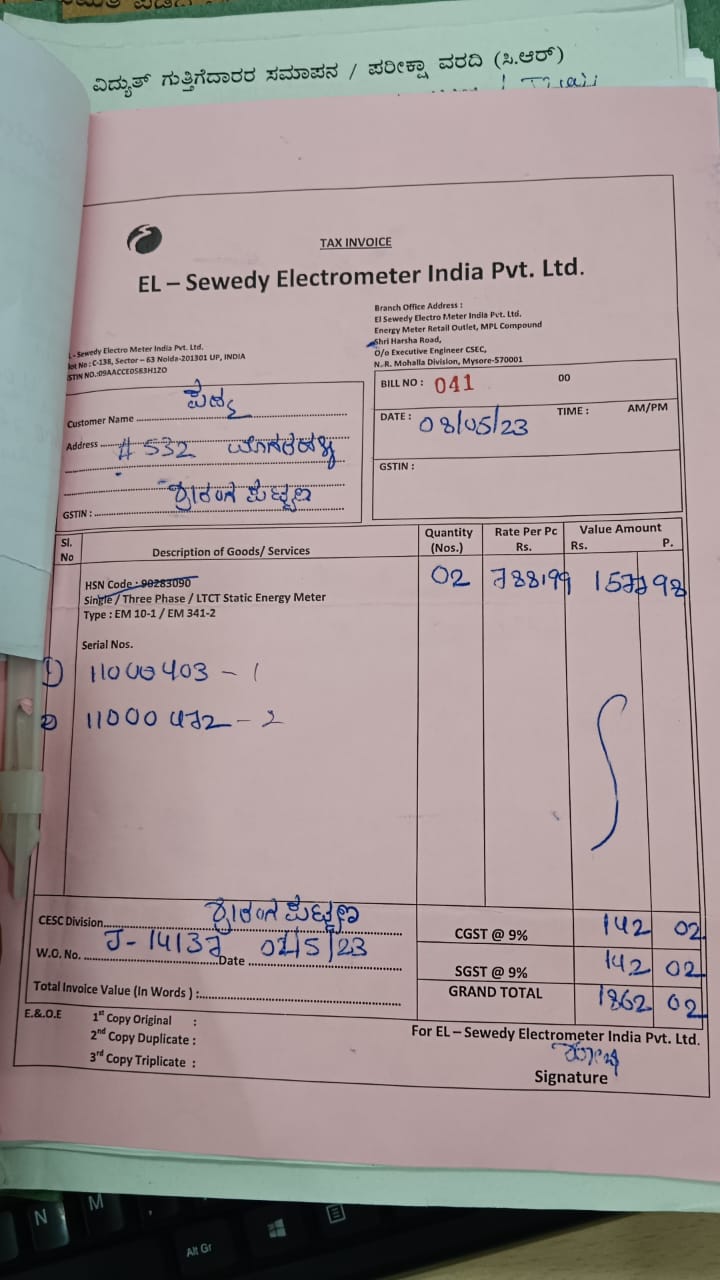 ವಿದ್ಯುತ್ ಗುತ್ತಿಗೆದಾರರ ಸಮಾಪನ / ಪರೀಕ್ಷಾ ವರದಿ (ಸಿ.ಆರ್)
TAX INVOICE
EL – Sewedy Electrometer India Pvt. Ltd.
- Sewedy Electro Meter India Pvt. Ltd.
lot No : C-138, Sector – 63 Noida-201301 UP, INDIA
STIN NO.:09AACCE0583H1ZO
Branch Office Address :
El Sewedy Electro Meter India Pvt. Ltd.
Energy Meter Retail Outlet, MPL Compound
Shri Harsha Road,
O/o Executive Engineer CSEC,
N.R. Mohalla Division, Mysore-570001
Customer Name
Address # 532
GSTIN :
BILL NO : 041 00
DATE : 08/05/23 TIME : AM/PM
GSTIN :
Sl. No Description of Goods/ Services Quantity (Nos.) Rate Per Pc Rs. Value Amount Rs. P.
HSN Code : 90283090 02 788.99 1577 98
Single / Three Phase / LTCT Static Energy Meter
Type : EM 10-1 / EM 341-2
Serial Nos.
1) 11000403 - 1
2) 11000472 - 2
CESC Division
W.O. No. J-14137 Date 07/5/23
Total Invoice Value (In Words ) :
CGST @ 9% 142 02
SGST @ 9% 142 02
GRAND TOTAL 1862 02
E.&.O.E 1st Copy Original :
2nd Copy Duplicate :
3rd Copy Triplicate :
For EL – Sewedy Electrometer India Pvt. Ltd.
Signature
N
M
Alt Gr